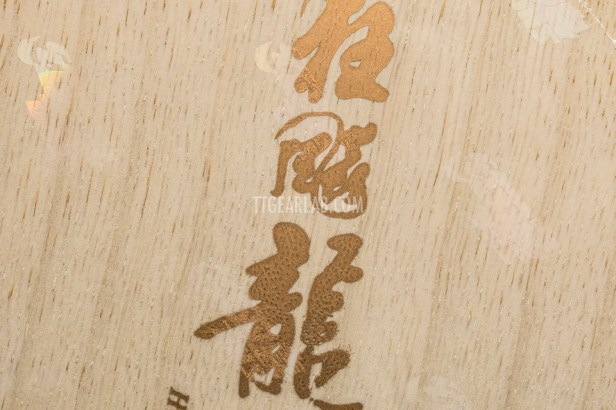 狂
飚
龍
TTGEARLAB.COM
H